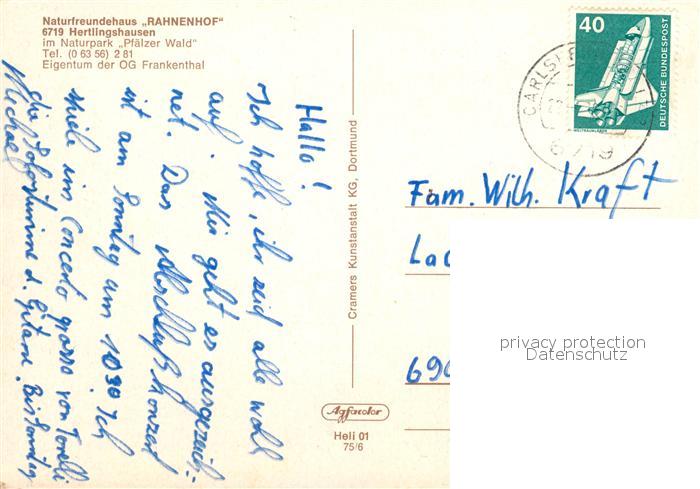 Naturfreundehaus „RAHNENHOF“
6719 Hertlingshausen
im Naturpark „Pfälzer Wald“
Tel. (0 63 56) 2 81
Eigentum der OG Frankenthal
Hallo!
Ich hoffe, ihr seid alle wohl
auf. Mir geht es ausgezeich-
net. Das Abschlußkonzert
ist am Sonntag um 10 30. Ich
spiele im Concerto grosso von Torelli
die Solostimme d. Gitarre. Bis Sonntag
Michael
Cramers Kunstanstalt KG, Dortmund
Agfacolor
Heli 01
75/6
40
DEUTSCHE BUNDESPOST
WELTRAUMLABOR
CARLS
6719
Fam. Wilh. Kraft
La
690
privacy protection
Datenschutz